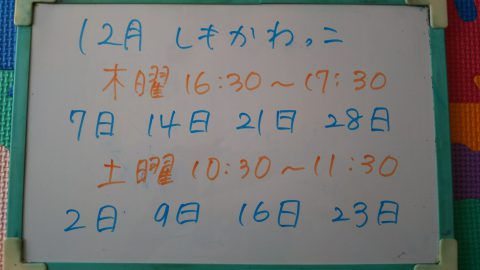 12月 しもかわっこ
木曜 16:30～17:30
7日 14日 21日 28日
土曜 10:30～11:30
2日 9日 16日 23日